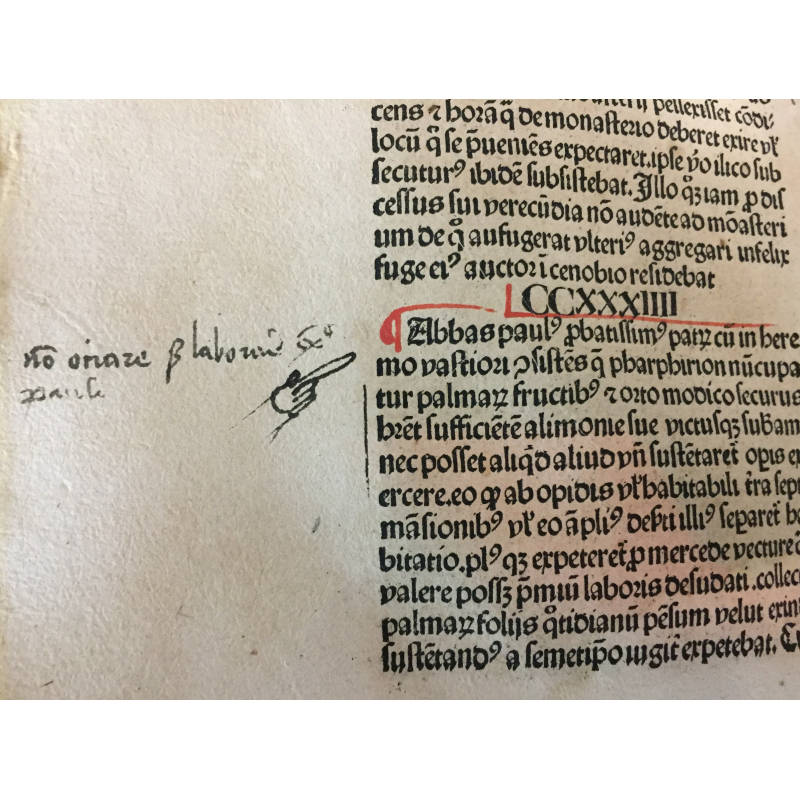 cens ⁊ horā q̄ de monasterio deberet exire vľ
locū q̄ se p̄uenıēs expectaret. ipse v̓o ilico sub
secuturꝰ ibidē subsistebat. Illo qꝫ iam ꝓ dis
cessus sui verecūdia nō audēte ad mōasteri
um de q̄ aufugerat vlteriꝰ aggregari infelix
fuge eiꝰ auctor ī cenobio residebat
CCXXXIIII
¶ Abbas paulꝰ ꝓbatissimꝰ patrꝫ cū in here
mo vastiori ꝯsistēs q̄ pharphirion nūcupa
tur palmaꝝ fructibꝰ ⁊ orto modico securus
brēt sufficiētē alimonie sue victusqꝫ subam
nec posset aliq̄d aliud vn̄ sustētaret̄ opis ex
ercere. eo ꝙ ab opidis vľ habitabili t̄ra sept
māsionibꝰ vľ eo āpliꝰ def̄ti illiꝰ separet̄
bitatio. plꝰ qꝫ expeteret̄ ꝓ mercede vecture
valere possꝫ p̄miū laboris desudati. collec
palmaꝝ folijs q̄tidianū pēsum velut exin
sustētandꝰ a semetip̄o iugit̄ expetebat.
nō ociare ꝓ laborem